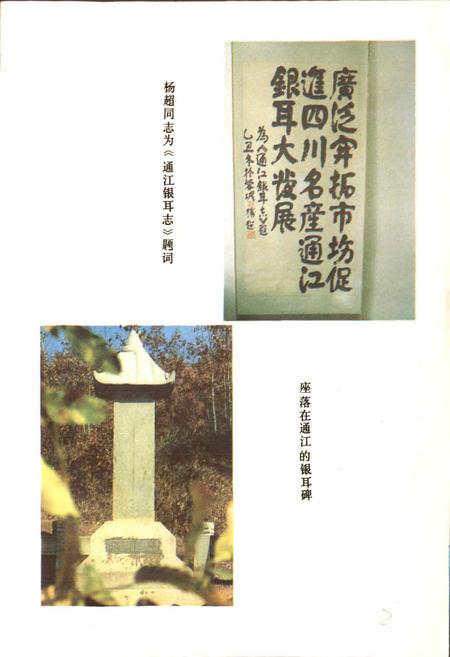 杨超同志为《通江银耳志》题词
廣泛开拓市场促
進四川名産通江
銀耳大发展
为《通江銀耳志》题
乙丑冬於蓉城 楊超
座落在通江的银耳碑